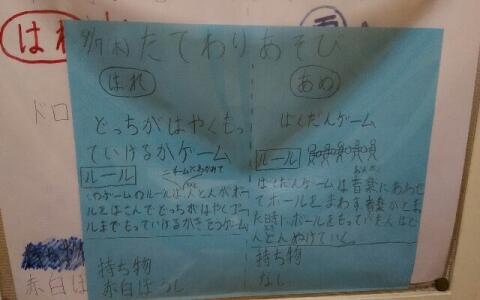 9/7(木)たてわりあそび
はれ
どっちがはやくもっ
ていけるかゲーム
ルール
このゲームのルールは人と人がボー
ルをはさんでどっちがはやくゴー
ルまでもっていけるかきそうゲーム
持ち物
赤白ぼうし
あめ
ばくだんゲーム
ルール
ばくだんゲームは音楽にあわせ
てボールをまわす音楽がとまっ
た時にボールをもっている人はど
んどんぬけていく
持ち物
なし
はれ
ドロ
赤白ぼ